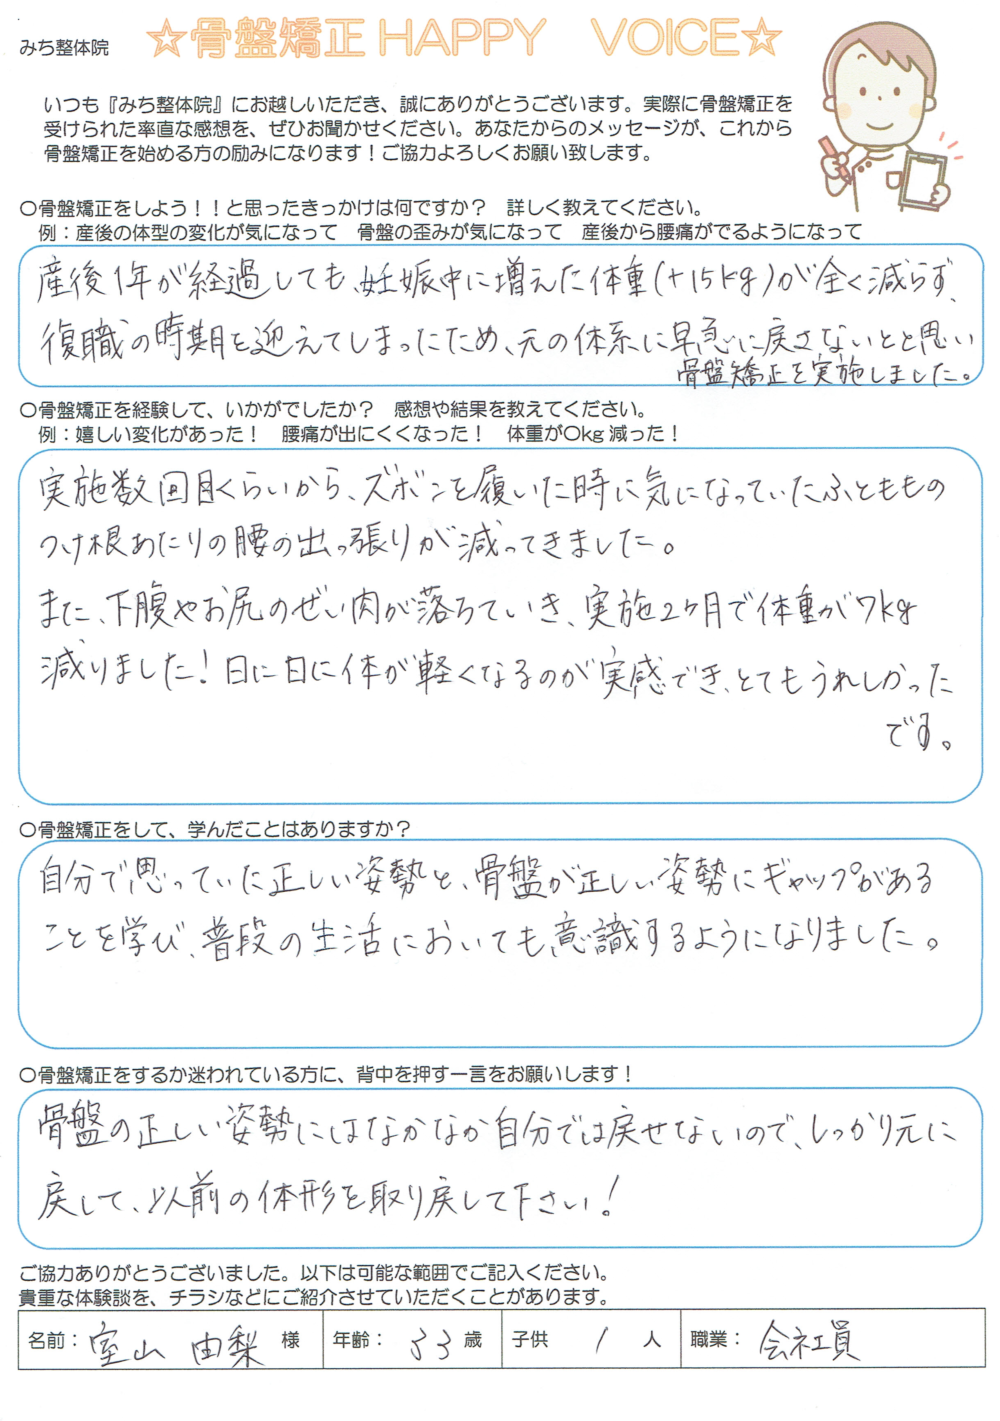 みち整体院
☆骨盤矯正 HAPPY VOICE☆
いつも『みち整体院』にお越しいただき、誠にありがとうございます。実際に骨盤矯正を
受けられた率直な感想を、ぜひお聞かせください。あなたからのメッセージが、これから
骨盤矯正を始める方の励みになります！ご協力よろしくお願い致します。
〇骨盤矯正をしよう！！と思ったきっかけは何ですか？　詳しく教えてください。
例：産後の体型の変化が気になって　骨盤の歪みが気になって　産後から腰痛がでるようになって
産後1年が経過しても、妊娠中に増えた体重(+15kg)が全く減らず、
復職の時期を迎えてしまったため、元の体系に早急に戻さないとと思い
骨盤矯正を実施しました。
〇骨盤矯正を経験して、いかがでしたか？　感想や結果を教えてください。
例：嬉しい変化があった！　腰痛が出にくくなった！　体重が〇kg 減った！
実施数回目くらいから、ズボンを履いた時に気になっていたふとももの
つけ根あたりの腰の出っ張りが減ってきました。
また、下腹やお尻のぜい肉が落ちていき、実施2ヶ月で体重が7kg
減りました！日に日に体が軽くなるのが実感でき、とてもうれしかった
です。
〇骨盤矯正をして、学んだことはありますか？
自分で思っていた正しい姿勢と、骨盤が正しい姿勢にギャップがある
ことを学び、普段の生活においても、意識するようになりました。
〇骨盤矯正をするか迷われている方に、背中を押す一言をお願いします！
骨盤の正しい姿勢にはなかなか自分では戻せないので、しっかり元に
戻して、以前の体形を取り戻して下さい！
ご協力ありがとうございました。以下は可能な範囲でご記入ください。
貴重な体験談を、チラシなどにご紹介させていただくことがあります。
名前：室山 由梨 様　年齢：33歳　子供 1 人　職業：会社員